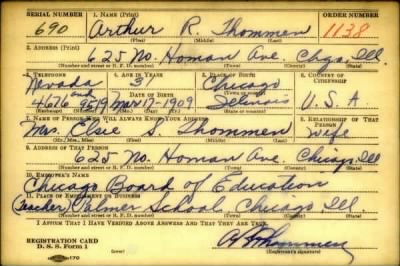 SERIAL NUMBER 1. NAME (Print) ORDER NUMBER
690 Arthur R. Thommen 1138
(First) (Middle) (Last)
2. ADDRESS (Print)
625 No. Homan Ave. Chgo. Ill.
(Number and street or R. F. D. number) (Town) (County) (State)
3. TELEPHONE 4. AGE IN YEARS 5. PLACE OF BIRTH 6. COUNTRY OF CITIZENSHIP
Nevada 31 Chicago
4676 and 9519 Mar 17-1909 Illinois U.S.A
7. NAME OF PERSON WHO WILL ALWAYS KNOW YOUR ADDRESS 8. RELATIONSHIP OF THAT PERSON
Mrs. Elsie S. Thommen Wife
9. ADDRESS OF THAT PERSON
625 No. Homan Ave. Chicago, Ill
(Number and street or R. F. D. number) (Town) (County) (State)
10. EMPLOYER'S NAME
Chicago Board of Education
11. PLACE OF EMPLOYMENT OR BUSINESS
(Teacher) Palmer School Chicago, Ill
(Number and street or R. F. D. number) (Town) (County) (State)
I AFFIRM THAT I HAVE VERIFIED ABOVE ANSWERS AND THAT THEY ARE TRUE.
REGISTRATION CARD
D. S. S. Form 1 (Registrant's signature)